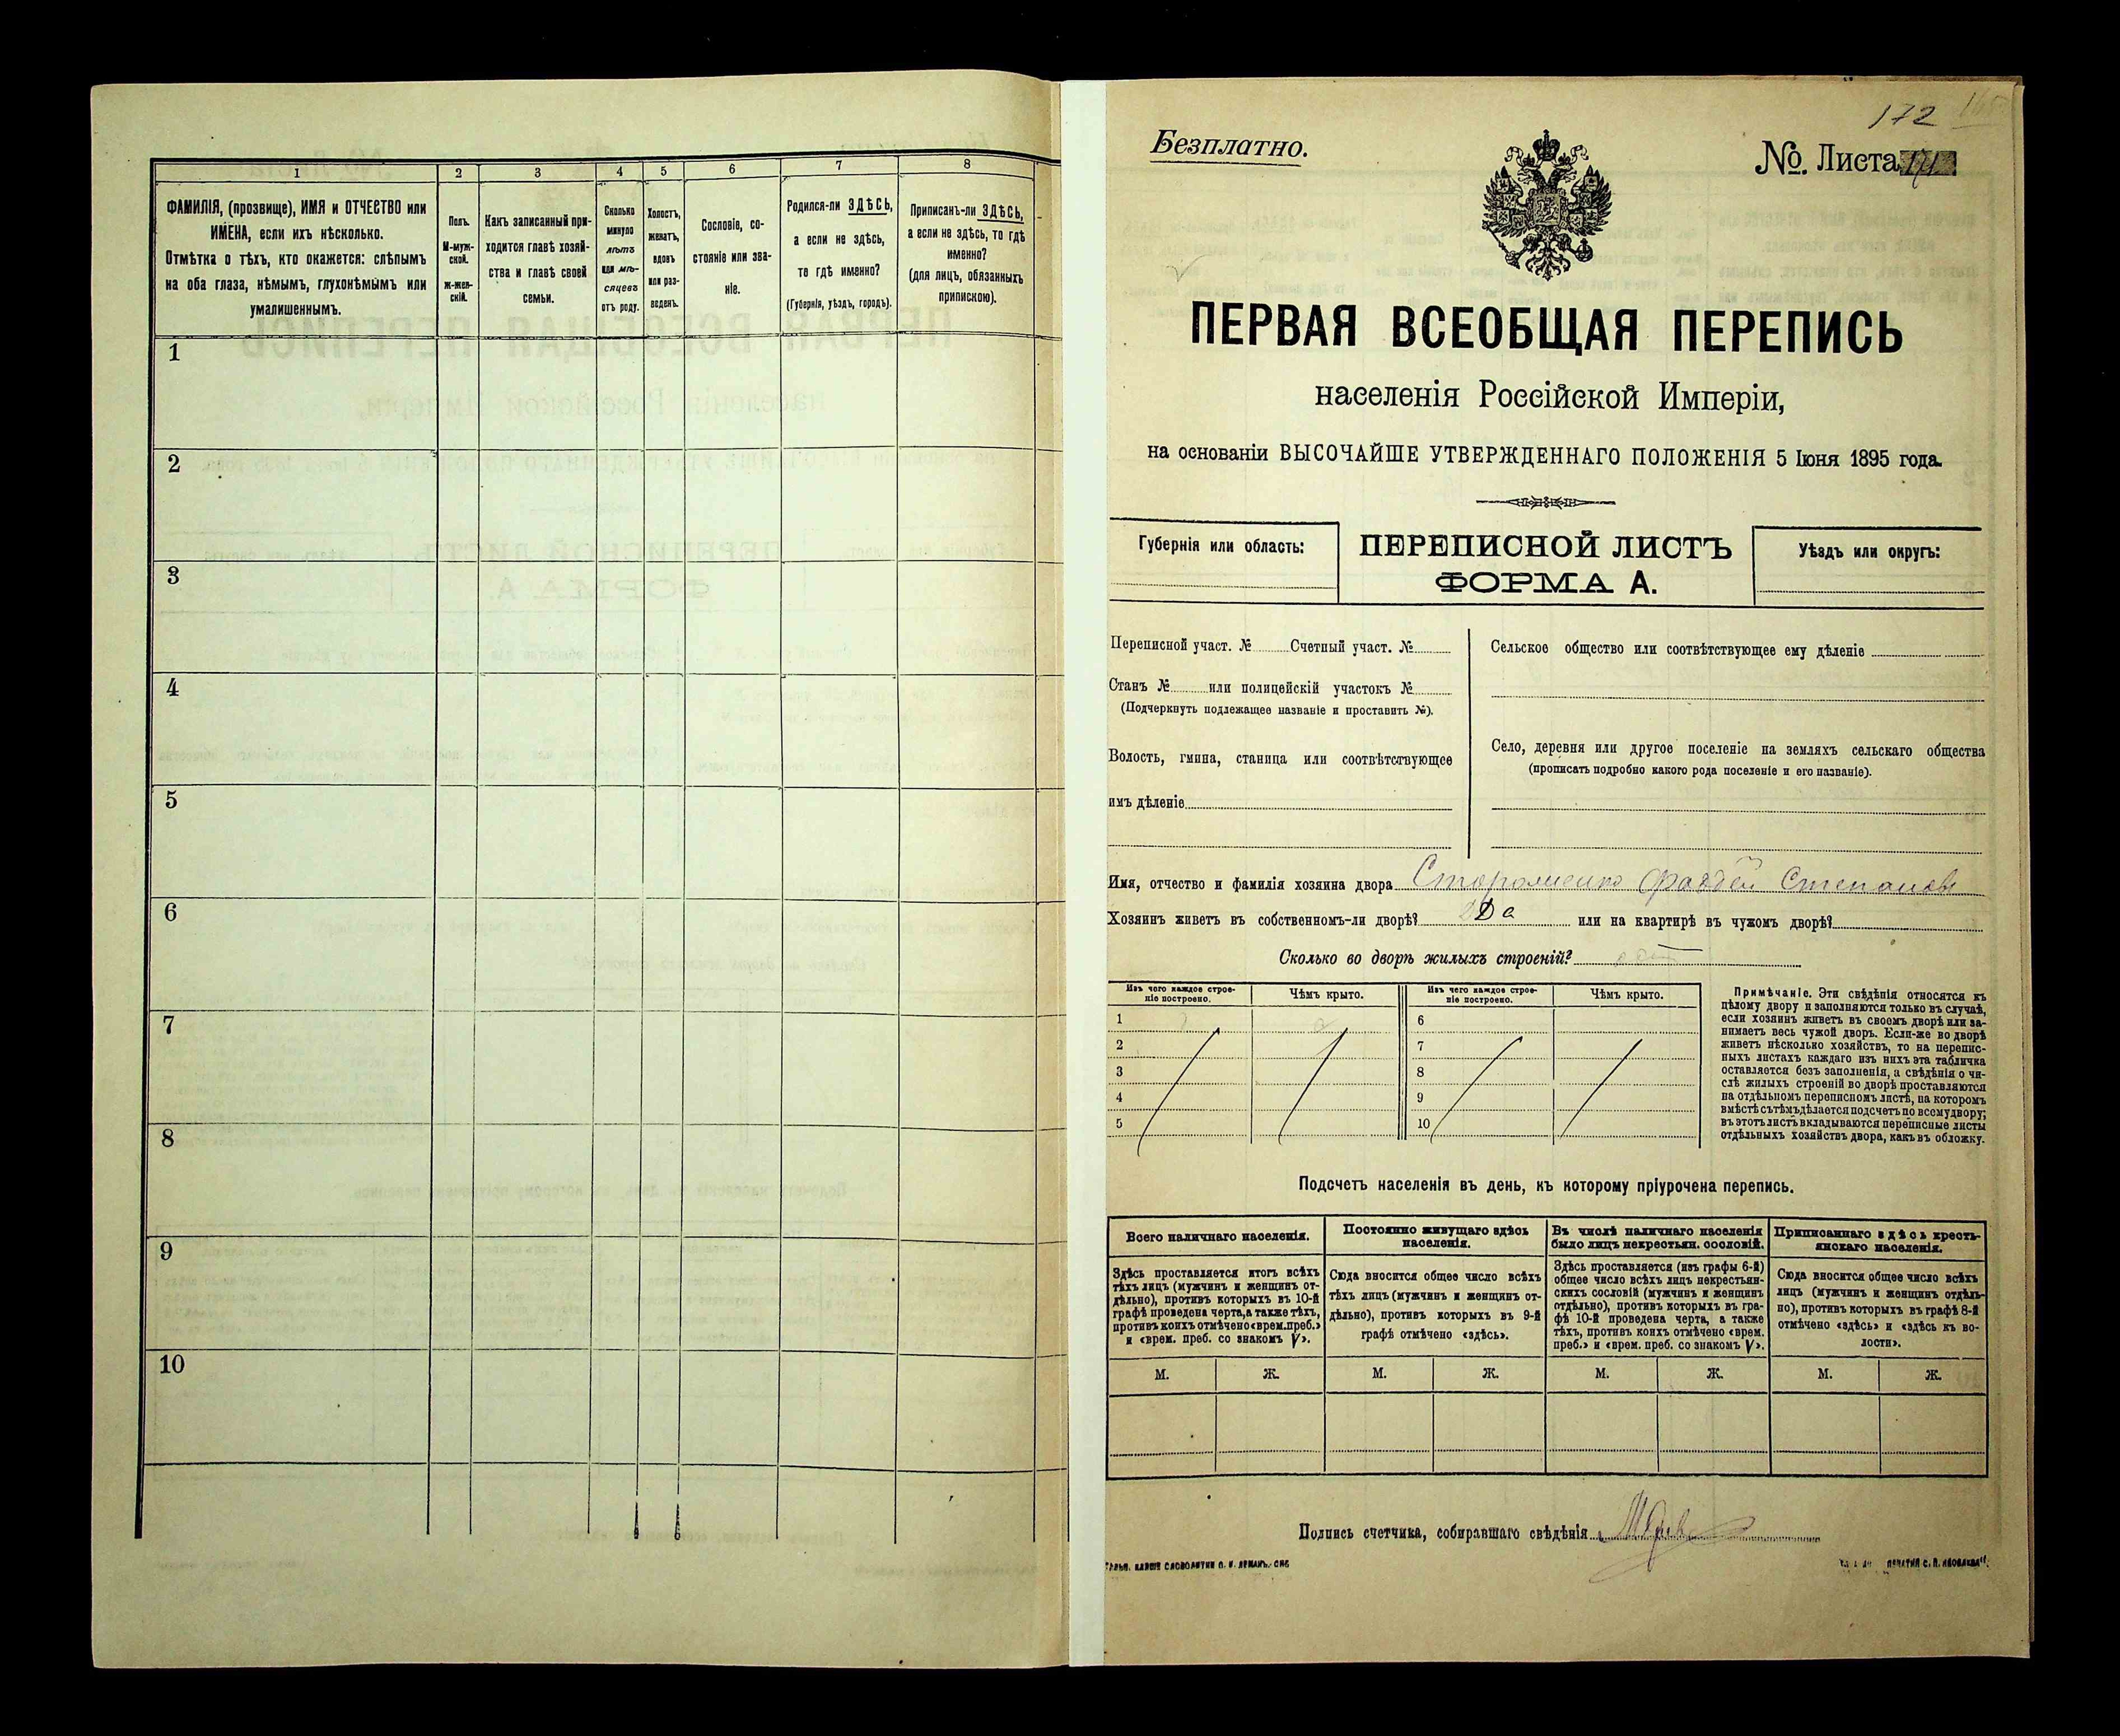 1
2
3
4
5
6
7
8
ФАМИЛІЯ, (прозвище), ИМЯ и ОТЧЕСТВО или
ИМЕНА, если ихъ нѣсколько.
Отмѣтка о тѣхъ, кто окажется: слѣпымъ
на оба глаза, нѣмымъ, глухонѣмымъ или
умалишеннымъ.
Полъ.
М-муж-
ской.
ж-жен-
скій.
Какъ записанный при-
ходится главѣ хозяй-
ства и главѣ своей
семьи.
Сколько
минуло
лѣтъ
или мѣ-
сяцевъ
отъ роду.
Холостъ,
женатъ,
вдовъ
или раз-
веденъ.
Сословіе, со-
стояніе или зва-
ніе.
Родился-ли ЗДѢСЬ,
а если не здѣсь,
то гдѣ именно?
(Губернія, уѣздъ, городъ).
Приписанъ-ли ЗДѢСЬ,
а если не здѣсь, то гдѣ
именно?
(для лицъ, обязанныхъ
припискою).
1
2
3
4
5
6
7
8
9
10
172
Безплатно.
№. Листа
ПЕРВАЯ ВСЕОБЩАЯ ПЕРЕПИСЬ
населенія Россійской Имперіи,
на основаніи ВЫСОЧАЙШЕ УТВЕРЖДЕННАГО ПОЛОЖЕНІЯ 5 Іюня 1895 года.
Губернія или область:
ПЕРЕПИСНОЙ ЛИСТЪ
ФОРМА А.
Уѣздъ или округъ:
Переписной участ. № Счетный участ. №
Станъ № или полицейскій участокъ №
(Подчеркнуть подлежащее названіе и проставить №).
Волость, гмина, станица или соотвѣтствующее
имъ дѣленіе
Сельское общество или соотвѣтствующее ему дѣленіе
Село, деревня или другое поселеніе на земляхъ сельскаго общества
(прописать подробно какого рода поселеніе и его названіе).
Имя, отчество и фамилія хозяина двора Фаддей Степановъ
Хозяинъ живетъ въ собственномъ-ли дворѣ? Да или на квартирѣ въ чужомъ дворѣ?
Сколько во дворѣ жилыхъ строеній?
Изъ чего каждое строе-
ніе построено.
Чѣмъ крыто.
Изъ чего каждое строе-
ніе построено.
Чѣмъ крыто.
1
2
3
4
5
6
7
8
9
10
Примѣчаніе. Эти свѣдѣнія относятся къ
цѣлому двору и заполняются только въ случаѣ,
если хозяинъ живетъ въ своемъ дворѣ или за-
нимаетъ весь чужой дворъ. Если-же во дворѣ
живетъ нѣсколько хозяйствъ, то на перепис-
ныхъ листахъ каждаго изъ нихъ эта табличка
оставляется безъ заполненія, а свѣдѣнія о чи-
слѣ жилыхъ строеній во дворѣ проставляются
на отдѣльномъ переписномъ листѣ, на которомъ
вмѣстѣ съ тѣмъ дѣлается подсчетъ по всему двору;
въ этотъ листъ вкладываются переписные листы
отдѣльныхъ хозяйствъ двора, какъ въ обложку.
Подсчетъ населенія въ день, къ которому пріурочена перепись.
Всего наличнаго населенія.
Здѣсь проставляется итогъ всѣхъ
тѣхъ лицъ (мужчинъ и женщинъ от-
дѣльно), противъ которыхъ въ 10-й
графѣ проведена черта, а также тѣхъ,
противъ коихъ отмѣчено «врем. преб.»
и «врем. преб. со знакомъ V».
Постоянно живущаго здѣсь
населенія.
Сюда вносится общее число всѣхъ
тѣхъ лицъ (мужчинъ и женщинъ от-
дѣльно), противъ которыхъ въ 9-й
графѣ отмѣчено «здѣсь».
Въ числѣ наличнаго населенія
было лицъ некрестьян. сословій.
Здѣсь проставляется (изъ графы 6-й)
общее число всѣхъ лицъ некрестьян-
скихъ сословій (мужчинъ и женщинъ
отдѣльно), противъ которыхъ въ гра-
фѣ 10-й проведена черта, а также
тѣхъ, противъ коихъ отмѣчено «врем.
преб.» и «врем. преб. со знакомъ V».
Приписаннаго здѣсь кресть-
янскаго населенія.
Сюда вносится общее число всѣхъ
лицъ (мужчинъ и женщинъ отдѣль-
но), противъ которыхъ въ графѣ 8-й
отмѣчено «здѣсь» и «здѣсь къ во-
лости».
М. Ж. М. Ж. М. Ж. М. Ж.
Подпись счетчика, собиравшаго свѣдѣнія